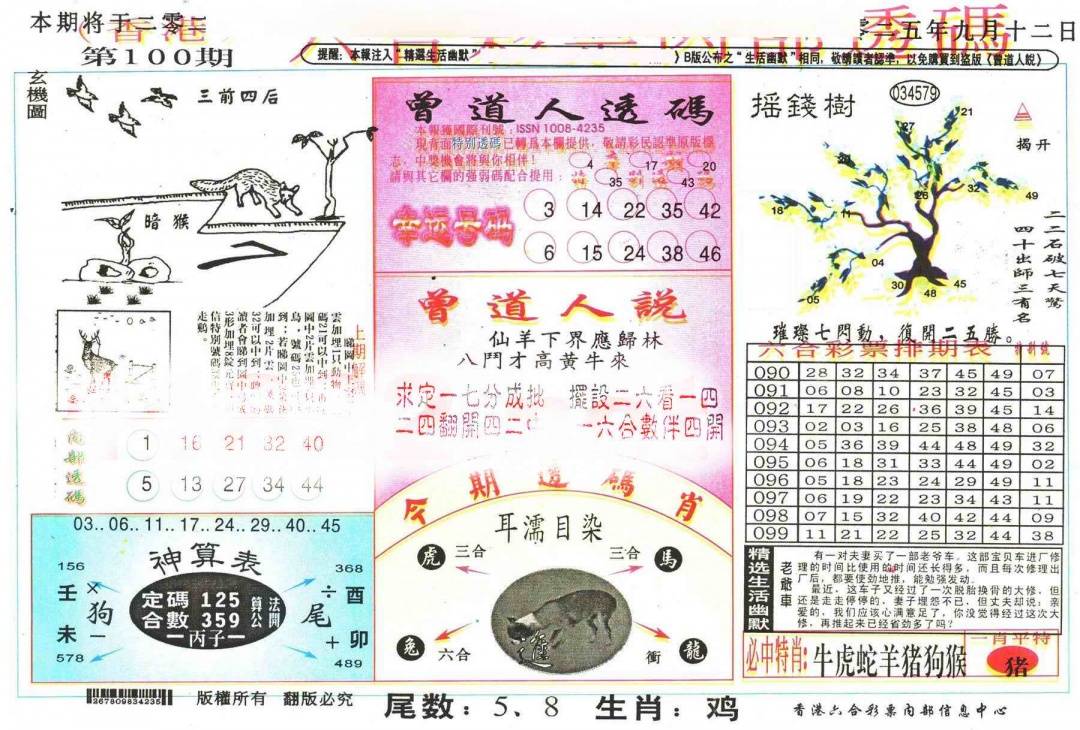 本期将于二零
二五年九月十二日
香港
透碼
第100期
提醒：本報注入"精選生活幽默"
B版公布之"生活幽默"相同，敬請讀者認準，以免購買到盜版《曾道人說》
玄機圖
三前四后
暗猴
上期解
1 16 21 32 40
5 13 27 34 44
03..06..11..17..24..29..40..45
神算表
156
368
壬
×
狗
未
－
578
定碼 125
合數 359
算法
公開
丙子
÷
酉
尾
＋
卯
489
曾道人透碼
本報獲國際刊號：ISSN 1008-4235
現背面特别透碼已轉爲本欄提供，敬請彩民認準原版標
志，中獎機會將與你相伴！
請與其它欄的强弱碼配合提用：
4 17 20
35 43
幸运号码
3 14 22 35 42
6 15 24 38 46
曾道人説
仙羊下界應歸林
八門才高黄牛來
求定一七分成批 擺設二六看一四
二四翻開四二中 一六合數伴四開
今期透碼肖
耳濡目染
虎
三合
三合
馬
兔
六合
衝
龍
摇錢樹
034579
揭开
21
27
49
32
26
18
11
04
30
48
45
05
二二石破七天驚
四十出師三有名
璀璨七閃動，復開二五勝。
六合彩票排期表
特别號
090 28 32 34 37 45 49 07
091 06 08 10 23 32 45 03
092 17 22 26 36 39 45 14
093 02 03 16 25 38 48 06
094 05 36 39 44 48 49 32
095 06 18 31 33 44 49 02
096 05 18 23 24 29 49 11
097 06 19 22 23 34 43 11
098 07 15 32 40 42 44 09
099 11 21 22 25 32 44 38
精选生活幽默
老爺車
有一对夫妻买了一部老爷车。这部宝贝车进厂修
理的时间比使用的时间还长得多，而且每次修理出
厂后，都要使劲地推，能勉强发动。
最近，这车子又经过了一次脱胎换骨的大修，但
还是走走停停的，妻子埋怨不已，但丈夫却说：亲
爱的，我们应该心满意足了，你没觉得经过这次大
修，再推起来已经省劲多了吗？
必中特肖：牛虎蛇羊猪狗猴
一肖平特
猪
267809834235
版權所有 翻版必究
尾数：5、8 生肖：鸡
香港六合彩票内部信息中心